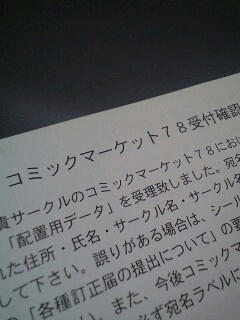 コミックマーケット７８受付確認
貴サークルのコミックマーケット７８におけ
「配置用データ」を受理致しました。宛名
れた住所・氏名・サークル名・サークル名
して下さい。誤りがある場合は、シール
の「各種訂正届の提出について」の要
い。また、今後コミックマ
必ず宛名ラベルに